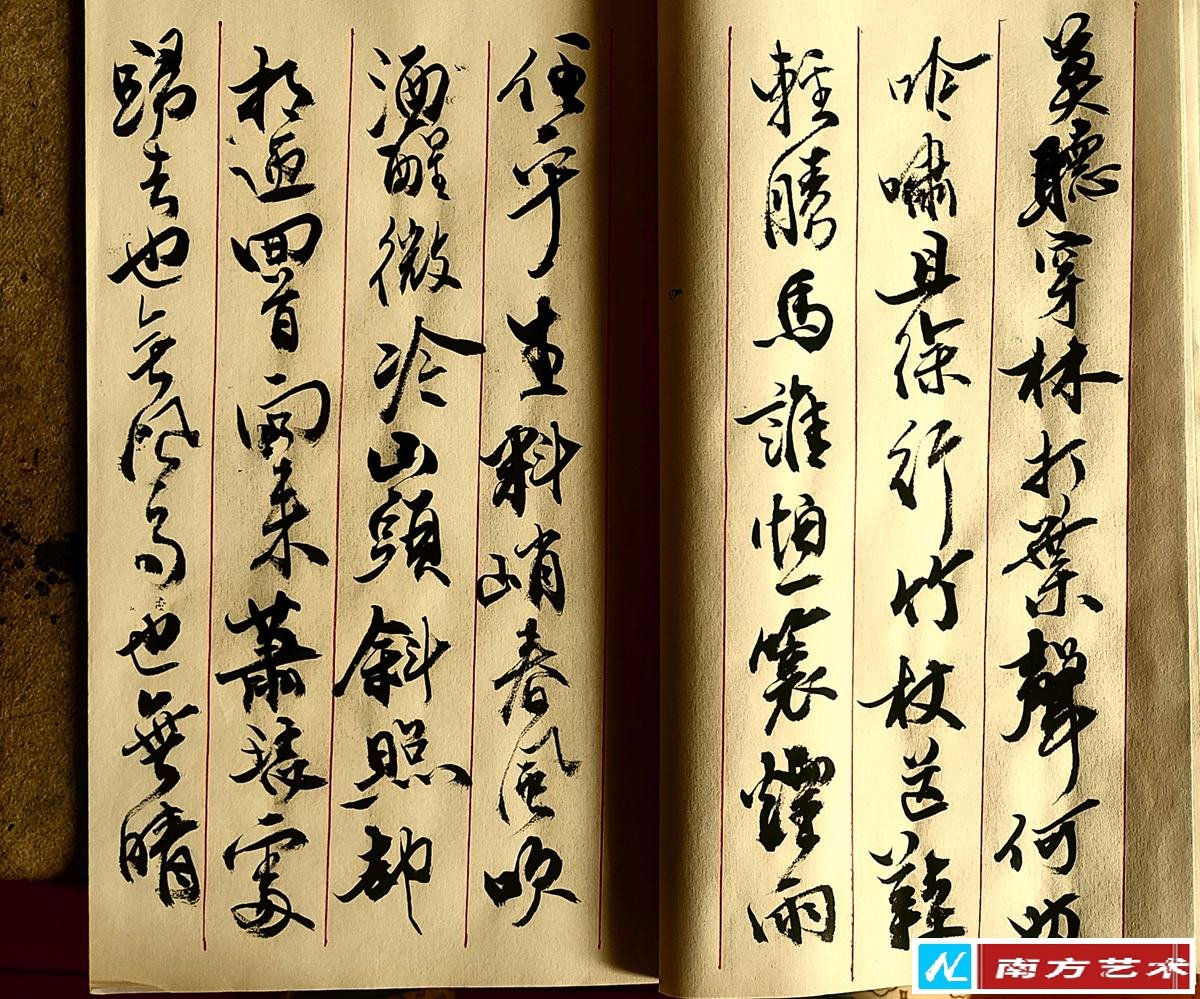 莫聽穿林打葉聲何妨
吟嘯且徐行竹杖芒鞋
輕勝馬誰怕一蓑煙雨
任平生料峭春風吹
酒醒微冷山頭斜照却
相迎回首向来蕭瑟處
歸去也無風雨也無晴
南方艺术